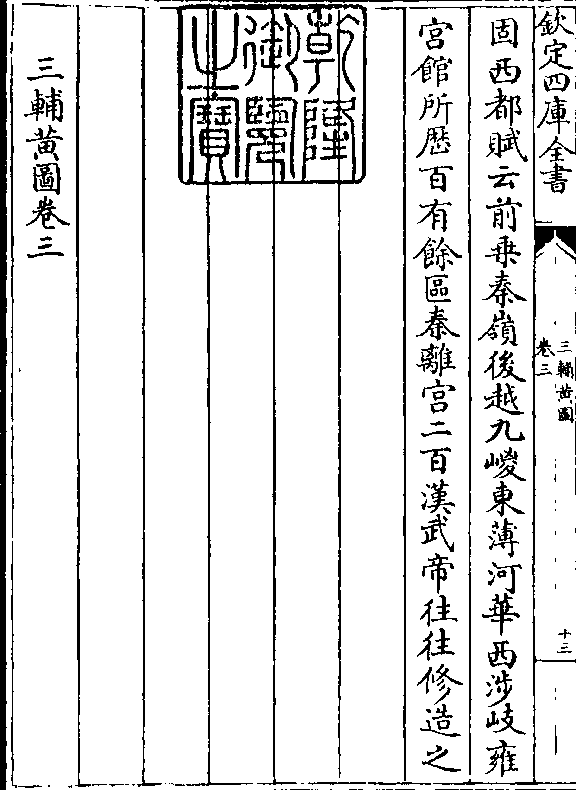 欽定四庫全書
三輔黃圖
卷三
十三
固西都賦云前乗秦嶺後越九嵕東薄河華西涉岐雍
宫館所歴百有餘區秦離宫二百漢武帝往往修造之
乾隆
御覽
之寶
三輔黄圖卷三